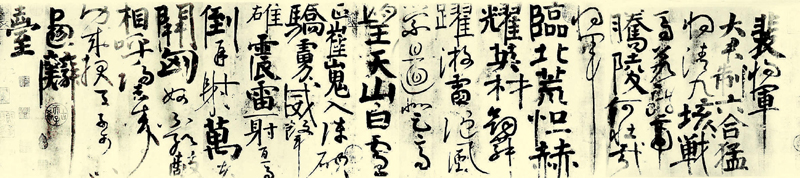 裴將軍
大君制六合猛
將清九垓戰
馬若龍虎
騰陵何壯哉
將軍
臨北荒恒赫
耀英材劍舞
躍游電隨風
縈且迴登高
望天山白雪
正崔嵬入陣破
驕虜威聲
雄震雷一射百馬
倒再射萬夫
開匈奴不敢敵
相呼歸去來
功成報天子可
以畫麟
臺